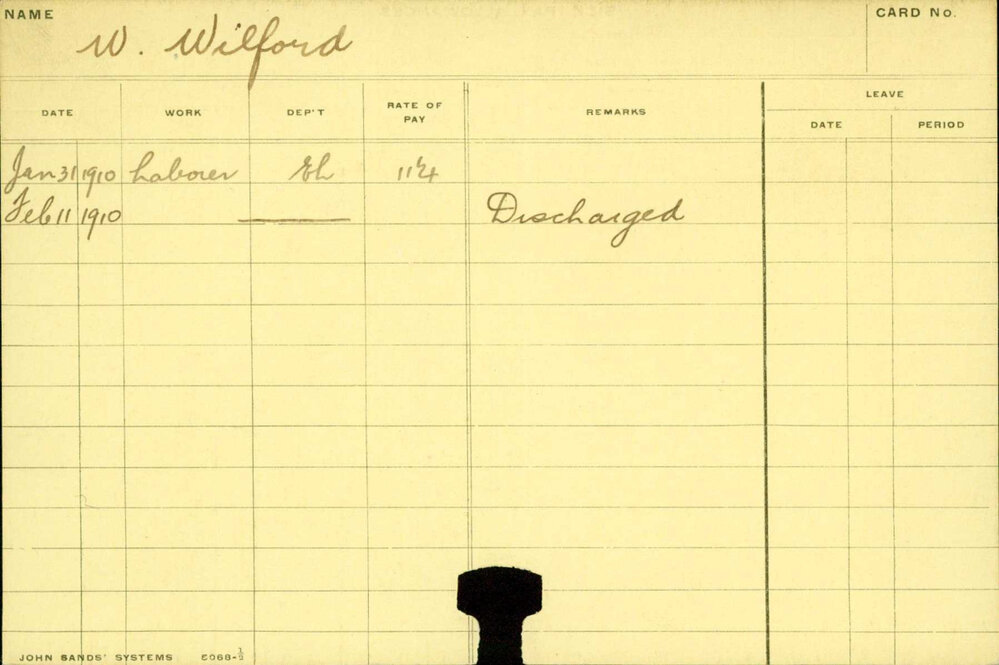 NAME
W. Wilford
CARD No.
DATE WORK DEP'T RATE OF PAY REMARKS LEAVE
DATE PERIOD
Jan 31 1910 Laborer Eh 11¼
Feb 11 1910 Discharged
JOHN SANDS' SYSTEMS